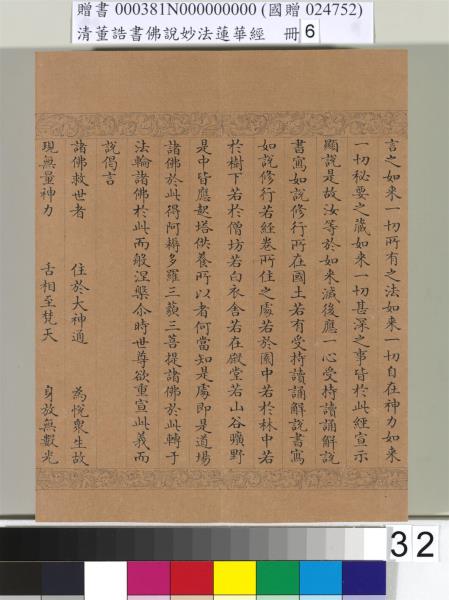 贈書 000381N000000000 (國贈 024752)
清董誥書佛說妙法蓮華經 冊 6
言之如来一切所有之法如来一切自在神力如来
一切秘要之藏如来一切甚深之事皆於此經宣示
顯說是故汝等於如来滅後應一心受持讀誦解說
書寫如說修行所在國土若有受持讀誦解說書寫
如說修行若經卷所住之處若於園中若於林中若
於樹下若於僧坊若白衣舍若在殿堂若山谷曠野
是中皆應起塔供養所以者何當知是處即是道場
諸佛於此得阿耨多羅三藐三菩提諸佛於此轉于
法輪諸佛於此而般涅槃尒時世尊欲重宣此義而
說偈言
諸佛救世者 住於大神通 為悅衆生故
現無量神力 舌相至梵天 身放無數光
32